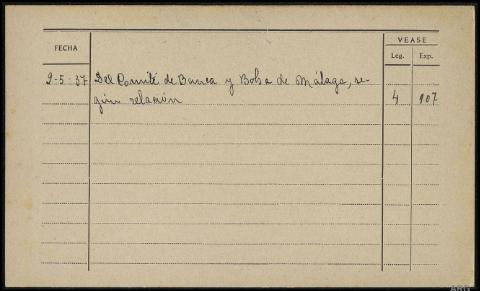 VEASE
FECHA
Leg. Exp.
9-5-37 Del Comité de Banca y Bolsa de Málaga, se-
gún relación 4 107
ARG